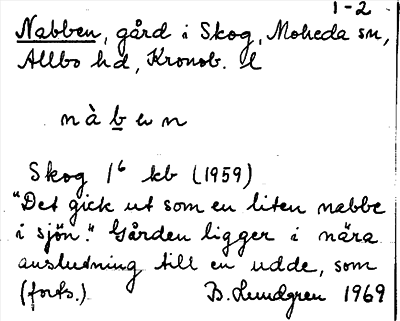 1-2
Nabben, gård i Skog, Moheda sn,
Allbo hd, Kronob. l
nàb̲en
Skog 1⁶ kb (1959)
"Det gick ut som en liten nabbe
i sjön." Gården ligger i nära
anslutning till en udde, som
(forts.) B. Lundgren 1969